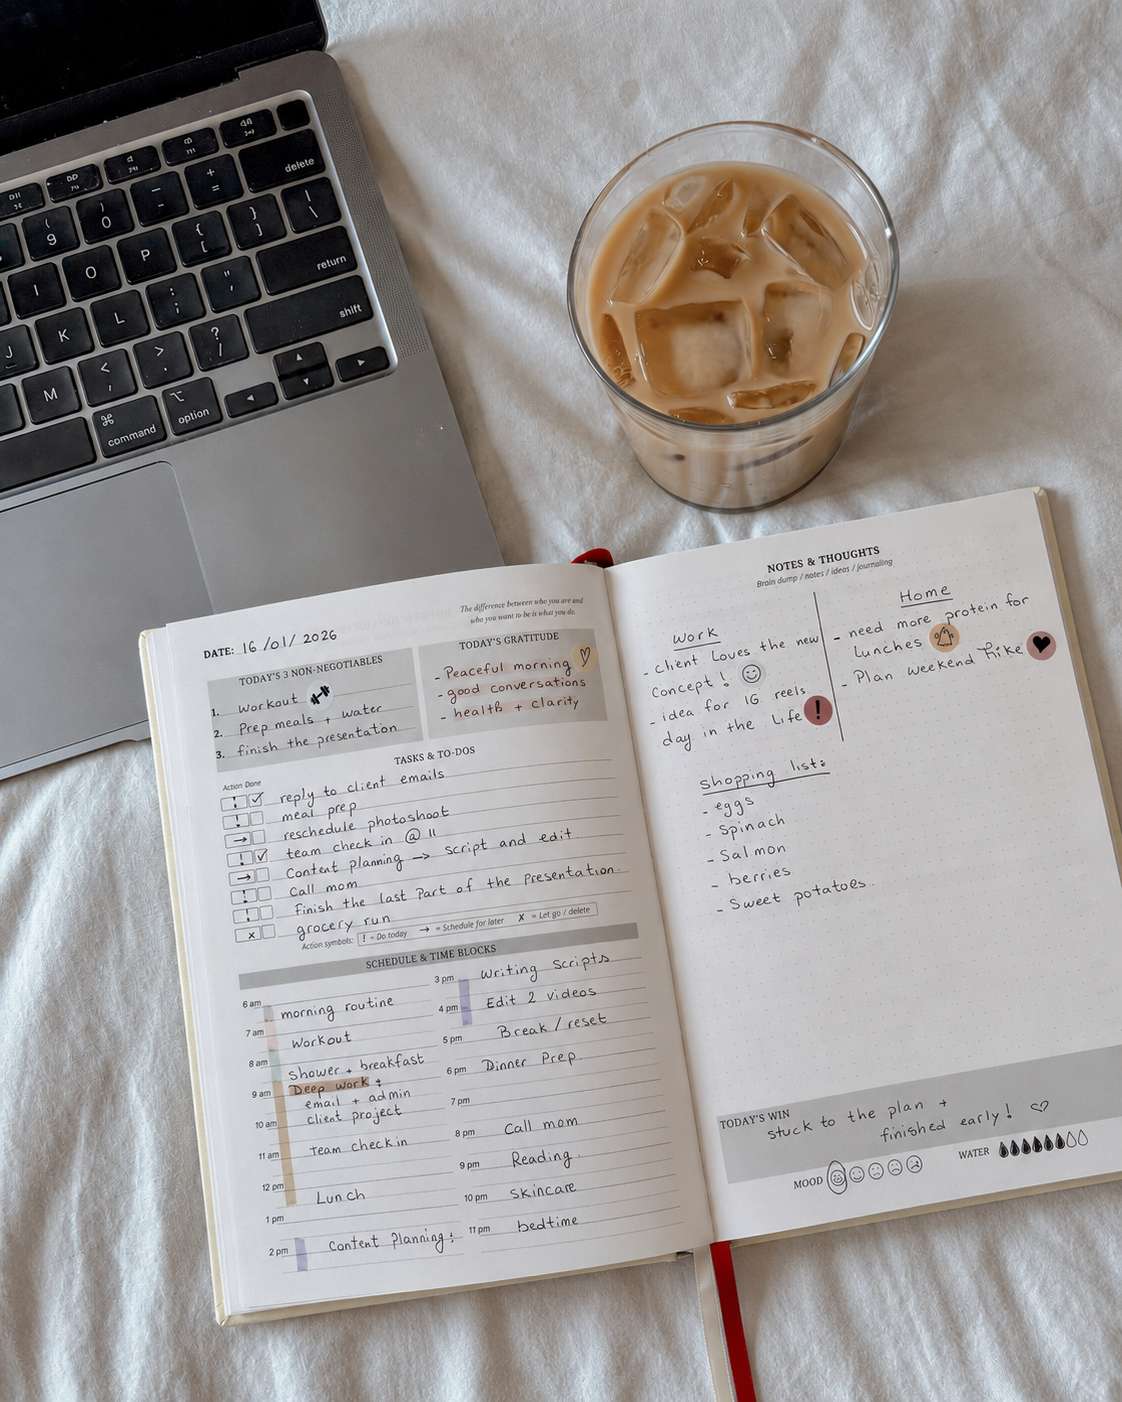 delete
return
shift
command
option
9
0
-
+
=
{
[
}
]
|
\
I
O
P
J
K
L
:
;
"
'
M
<
,
>
.
?
/
The difference between who you are and
who you want to be is what you do.
DATE: 16/01/2026
TODAY'S 3 NON-NEGOTIABLES
1. Workout
2. Prep meals + water
3. finish the presentation
TODAY'S GRATITUDE
- Peaceful morning
- good conversations
- health + clarity
TASKS & TO-DOS
Action Done
! ✓ reply to client emails
! meal prep
→ reschedule photoshoot
! ✓ team check in @ 11
→ Content planning → script and edit
! Call mom
! finish the last part of the presentation
x grocery run
Action symbols: ! = Do today → = Schedule for later X = Let go / delete
SCHEDULE & TIME BLOCKS
6 am morning routine
7 am Workout
8 am Shower + breakfast
9 am Deep work:
email + admin
10 am client project
11 am Team check in
12 pm Lunch
1 pm
2 pm Content planning:
3 pm Writing Scripts
4 pm Edit 2 videos
5 pm Break / reset
6 pm Dinner Prep
7 pm
8 pm Call mom
9 pm Reading
10 pm skincare
11 pm bedtime
NOTES & THOUGHTS
Brain dump / notes / ideas / journaling
Work
- client loves the new
concept!
- idea for IG reels
day in the life !
Home
- need more protein for
lunches
- Plan weekend hike
Shopping list:
- eggs
- Spinach
- Salmon
- berries
- Sweet potatoes
TODAY'S WIN
stuck to the plan +
finished early!
MOOD
WATER